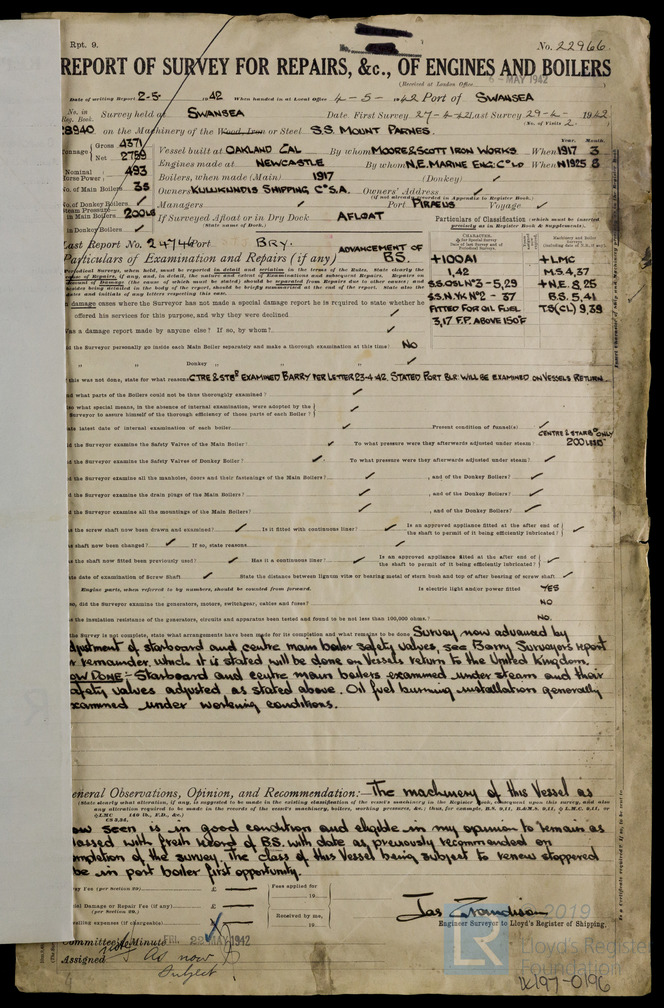 Rpt. 9.
No. 22966
REPORT OF SURVEY FOR REPAIRS, &c., OF ENGINES AND BOILERS
(Received at London Office 6 - MAY 1942
Date of writing Report 2-5- 1942 When handed in at Local Office 4-5-1942 Port of SWANSEA
No. in Reg. Book. Survey held at SWANSEA Date. First Survey 27-4-42 Last Survey 29-4- 1942
(No. of Visits 2.)
28940 on the Machinery of the Wood, Iron or Steel S.S. MOUNT PARNES.
Tonnage Gross 4371 Net 2759
Vessel built at OAKLAND CAL By whom MOORE & SCOTT IRON WORKS When 1917 3
Nominal Horse Power 493 Engines made at NEWCASTLE By whom N.E. MARINE ENG: Co Ld When N1925 8
No. of Main Boilers 3S Boilers, when made (Main) 1917 (Donkey) ✓
No. of Donkey Boilers ✓ Owners KULUKUNDIS SHIPPING Co S.A. Owners' Address ✓
(if not already recorded in Appendix to Register Book.)
Steam Pressure in Main Boilers 200 lb Managers ✓ Port PIRAEUS Voyage ✓
in Donkey Boilers ✓ If Surveyed Afloat or in Dry Dock AFLOAT
(State name of Dock.)
Particulars of Classification (which must be inserted precisely as in Register Book & Supplements).
Last Report No. 24746 Port BRY.
Particulars of Examination and Repairs (if any) ADVANCEMENT OF BS.
+100A1
1,42
S.S.OSL No 3 - 5,29
S.S. N. YK No 2 - 37
FITTED FOR OIL FUEL
3,17 F.P. ABOVE 150°F
+LMC
M.S. 4,37
+N.E. 8,25
B.S. 5,41
TS(CL) 9,39
damage cases where the Surveyor has not made a special damage report he is required to state whether he
offered his services for this purpose, and why they were declined ✓
Was a damage report made by anyone else? If so, by whom? ✓
the Surveyor personally go inside each Main Boiler separately and make a thorough examination at this time? NO
" " Donkey " " " ✓
If this was not done, state for what reasons CTRE & STBD EXAMINED BARRY PER LETTER 23-4-42. STATED PORT BLR. WILL BE EXAMINED ON VESSELS RETURN.
what parts of the Boilers could not be thus thoroughly examined? ✓
what special means, in the absence of internal examination, were adopted by the
Surveyor to assure himself of the thorough efficiency of those parts of each Boiler? ✓
latest date of internal examination of each boiler ✓ Present condition of funnel(s) ✓
CENTRE & STARBD ONLY
the Surveyor examine the Safety Valves of the Main Boiler? ✓ To what pressure were they afterwards adjusted under steam? 200 LBS
the Surveyor examine the Safety Valves of Donkey Boiler? ✓ To what pressure were they afterwards adjusted under steam? ✓
the Surveyor examine all the manholes, doors and their fastenings of the Main Boilers? ✓ , and of the Donkey Boilers? ✓
the Surveyor examine the drain plugs of the Main Boilers? ✓ , and of the Donkey Boilers? ✓
the Surveyor examine all the mountings of the Main Boilers? ✓ , and of the Donkey Boilers? ✓
the screw shaft now been drawn and examined? ✓ Is it fitted with continuous liner? ✓ Is an approved appliance fitted at the after end of the shaft to permit of it being efficiently lubricated? ✓
shaft now been changed? ✓ If so, state reasons
the shaft now fitted been previously used? ✓ Has it a continuous liner? ✓ Is an approved appliance fitted at the after end of the shaft to permit of it being efficiently lubricated? ✓
date of examination of Screw Shaft ✓ State the distance between lignum vitæ or bearing metal of stern bush and top of after bearing of screw shaft ✓
Engine parts, when referred to by numbers, should be counted from forward. Is electric light and/or power fitted YES
so, did the Surveyor examine the generators, motors, switchgear, cables and fuses? NO
the insulation resistance of the generators, circuits and apparatus been tested and found to be not less than 100,000 ohms? NO.
the Survey is not complete, state what arrangements have been made for its completion and what remains to be done Survey now advanced by
adjustment of starboard and centre main boiler safety valves, see Barry Surveyors report
remainder, which it is stated will be done on Vessels return to the United Kingdom.
NOW DONE:- Starboard and centre main boilers examined under steam and their
safety valves adjusted as stated above. Oil fuel burning installation generally
examined under working conditions.
General Observations, Opinion, and Recommendation:- The machinery of this Vessel as
(State clearly what alteration, if any, is suggested to be made in the existing classification of the vessel's machinery in the Register Book, consequent upon this survey, and also
any alteration required to be made in the records of the vessel's machinery, boilers, working pressures, &c.; thus, for example, B.S. 9,11, B.&M.S. 9,11, L.M.C. 9,11, or
LMC 140 lb., F.D., &c.)
now seen is in good condition and eligible in my opinion to remain as
classed with fresh record of BS. with date as previously recommended on
completion of the survey. The class of this Vessel being subject to renew stoppered
tube in port boiler first opportunity.
Survey Fee (per Section 29) £ — Fees applied for
Special Damage or Repair Fee (if any) (per Section 29.) £ —
Travelling expenses (if chargeable) £ Received by me,
Jas Grandison
Engineer Surveyor to Lloyd's Register of Shipping.
Committee's Minute FRI. 29 MAY 1942
Assigned As now
Subject
© 2019
LR Lloyd's Register
Foundation
W197-0196